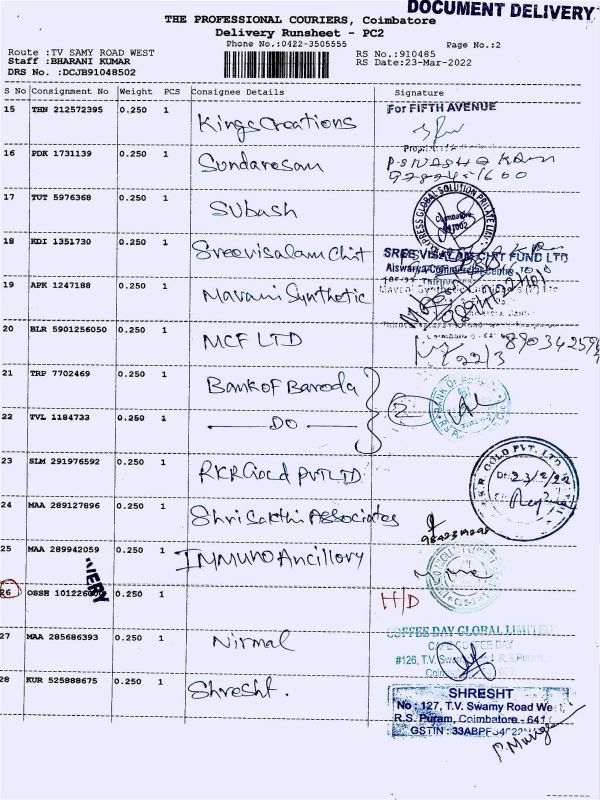 DOCUMENT DELIVERY
THE PROFESSIONAL COURIERS, Coimbatore
Delivery Runsheet - PC2
Phone No.:0422-3505555
Page No.:2
Route :TV SAMY ROAD WEST
RS No.:910485
Staff :BHARANI KUMAR
RS Date:23-Mar-2022
DRS No. :DCJB91048502
S No Consignment No Weight PCS Consignee Details Signature
15 THN 212572395 0.250 1 Kings Creations For FIFTH AVENUE
16 PDK 1731139 0.250 1 Sundaresan
17 TUT 5976368 0.250 1 Subash
18 KDI 1351730 0.250 1 Sreevisalam Chit SREE VISALAM CHIT FUND LTD
Aiswarya Commercial Centre
19 APK 1247188 0.250 1 Mavani Synthetic
20 BLR 5901256050 0.250 1 MCF LTD
22/3
21 TRP 7702469 0.250 1 Bank of Baroda 2
22 TVL 1184733 0.250 1 DO
23 SLM 291976592 0.250 1 RKR Gold PVT LTD
24 MAA 289127896 0.250 1 Shri Sakthi Associates
25 MAA 289942059 0.250 1 IMMUNO Ancillory
26 OSSH 0.250 1 H/D
VERY
27 MAA 285686393 0.250 1 Nirmal COFFEE DAY GLOBAL LIMITED
CAFE COFFEE DAY
#126, T.V. R.S.Puram,
28 KUR 525888675 0.250 1 Shresht. SHRESHT
No : 127, T.V. Swamy Road We
R.S. Puram, Coimbatore - 641